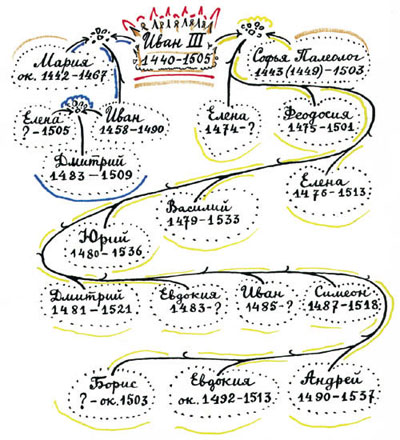 Иван III
1440-1505
Мария
ок. 1442-1467
Софья Палеолог
1443(1449)-1503
Елена
?-1505
Иван
1458-1490
Дмитрий
1483-1509
Елена
1474-?
Феодосия
1475-1501
Елена
1476-1513
Василий
1479-1533
Юрий
1480-1536
Дмитрий
1481-1521
Евдокия
1483-?
Иван
1485-?
Симеон
1487-1518
Борис
?-ок. 1503
Евдокия
ок. 1492-1513
Андрей
1490-1537